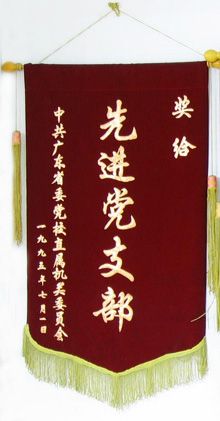 奖给
先进党支部
中共广东省委党校直属机关委员会
一九九三年七月一日